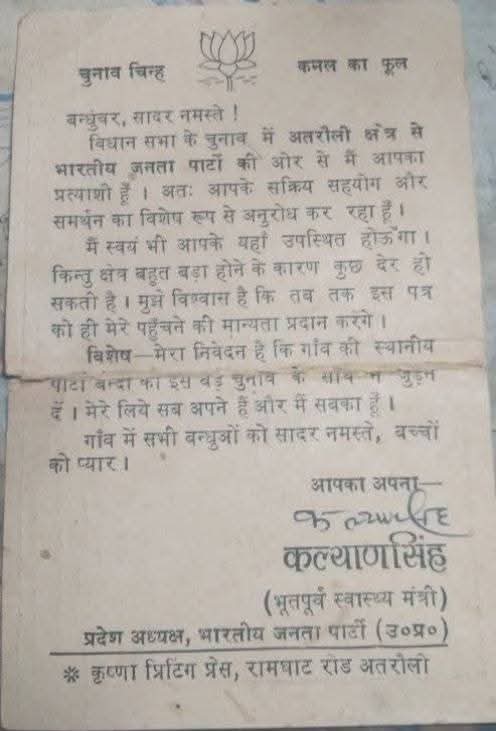 चुनाव चिन्ह कमल का फूल
बन्धुवर, सादर नमस्ते !
विधान सभा के चुनाव में अतरौली क्षेत्र से
भारतीय जनता पार्टी की ओर से मैं आपका
प्रत्याशी हूँ । अतः आपके सक्रिय सहयोग और
समर्थन का विशेष रूप से अनुरोध कर रहा हूँ ।
मैं स्वयं भी आपके यहाँ उपस्थित होऊँगा ।
किन्तु क्षेत्र बहुत बड़ा होने के कारण कुछ देर हो
सकती है । मुझे विश्वास है कि तब तक इस पत्र
को ही मेरे पहुँचने की मान्यता प्रदान करेंगे ।
विशेष—मेरा निवेदन है कि गाँव की स्थानीय
पार्टी बन्दी को इस बड़े चुनाव के साथ न जुड़ने
दें । मेरे लिये सब अपने हैं और मैं सबका हूँ ।
गाँव में सभी बन्धुओं को सादर नमस्ते, बच्चों
को प्यार ।
आपका अपना—
कल्याणसिंह
कल्याणसिंह
(भूतपूर्व स्वास्थ्य मंत्री)
प्रदेश अध्यक्ष, भारतीय जनता पार्टी (उ०प्र०)
* कृष्णा प्रिटिंग प्रेस, रामघाट रोड अतरौली